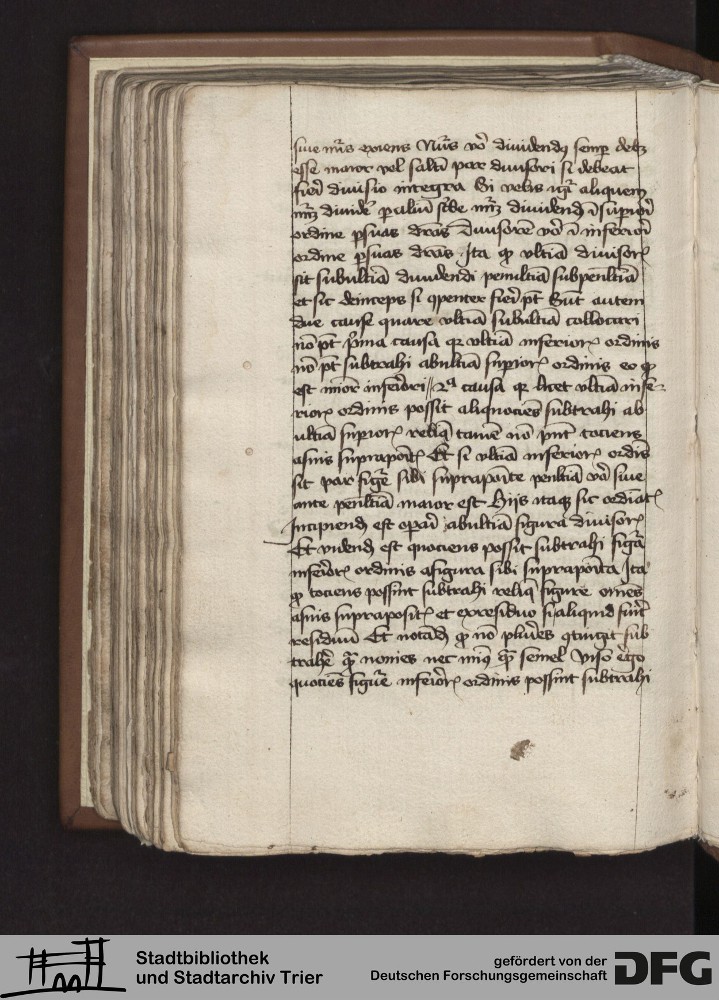 siue nu̅s exiens Nu̅s vo̅ diuidendꝰ semper debꝫ
esse maior vel salti̅ par diuisori si debeat
fieri diuisio integra Si velis igr̅ aliquem
nu̅ꝫ diuide̅ p aliu̅ sc̅be nu̅ꝫ diuidend̅ i̅ supiori
ordine p suas dr̅as diuisore̅ vo̅ i̅ inferiori
ordine p suas dr̅as Ita ꝙ vltia̅ diuisorꝭ
sit sub ultia̅ diuidendi penultia̅ sub penl̅tia̅
et sic deinceps si ꝯpenter fieri pt̅ Su̅t autem
due cause quare vltia̅ sub ultia̅ collocari
no̅ pt̅ p̅ma causa qꝛ vltia̅ inferiorꝭ ordinis
no̅ pt̅ subtrahi ab ultia̅ supiorꝭ ordinis eo ꝙ
est mi̅or inferiori // 2ᵃ causa qꝛ licet vltia̅ infe-
riorꝭ ordinis possit aliquocie̅s subtrahi ab
ultia̅ supiorꝭ reliq̅ tame̅ no̅ pn̅t tociens
a suis suprapo̅itꝭ Et si vltia̅ inferiorꝭ ordi̅s
sit par figu̅e sibi suprapo̅ite penl̅tia̅ vo̅ siue
ante penl̅tia̅ maior est Hijs itaqꝫ sic ordi̅atꝭ
Incipiend̅ est op̅ari ab ultia̅ figura diuisorꝭ
Et vidend̅ est quociens possit subtrahi figu̅a
inferiorꝭ ordinis a figura sibi suprapo̅ita Ita
ꝙ tociens possint subtrahi reliq̅ figure om̅es
a suis suprapositꝭ et ex residuo si aliquid fu̅it
residuu̅ Et nota̅d̅ ꝙ no̅ plu̅ies ꝯtingit sub
trahe̅ qᷓ nonies nec minꝰ qᷓ semel Viso e̅go
quocie̅s figu̅e inferiorꝭ ordinis possint subtrahi
Stadtbibliothek
und Stadtarchiv Trier
gefördert von der
Deutschen Forschungsgemeinschaft
DFG